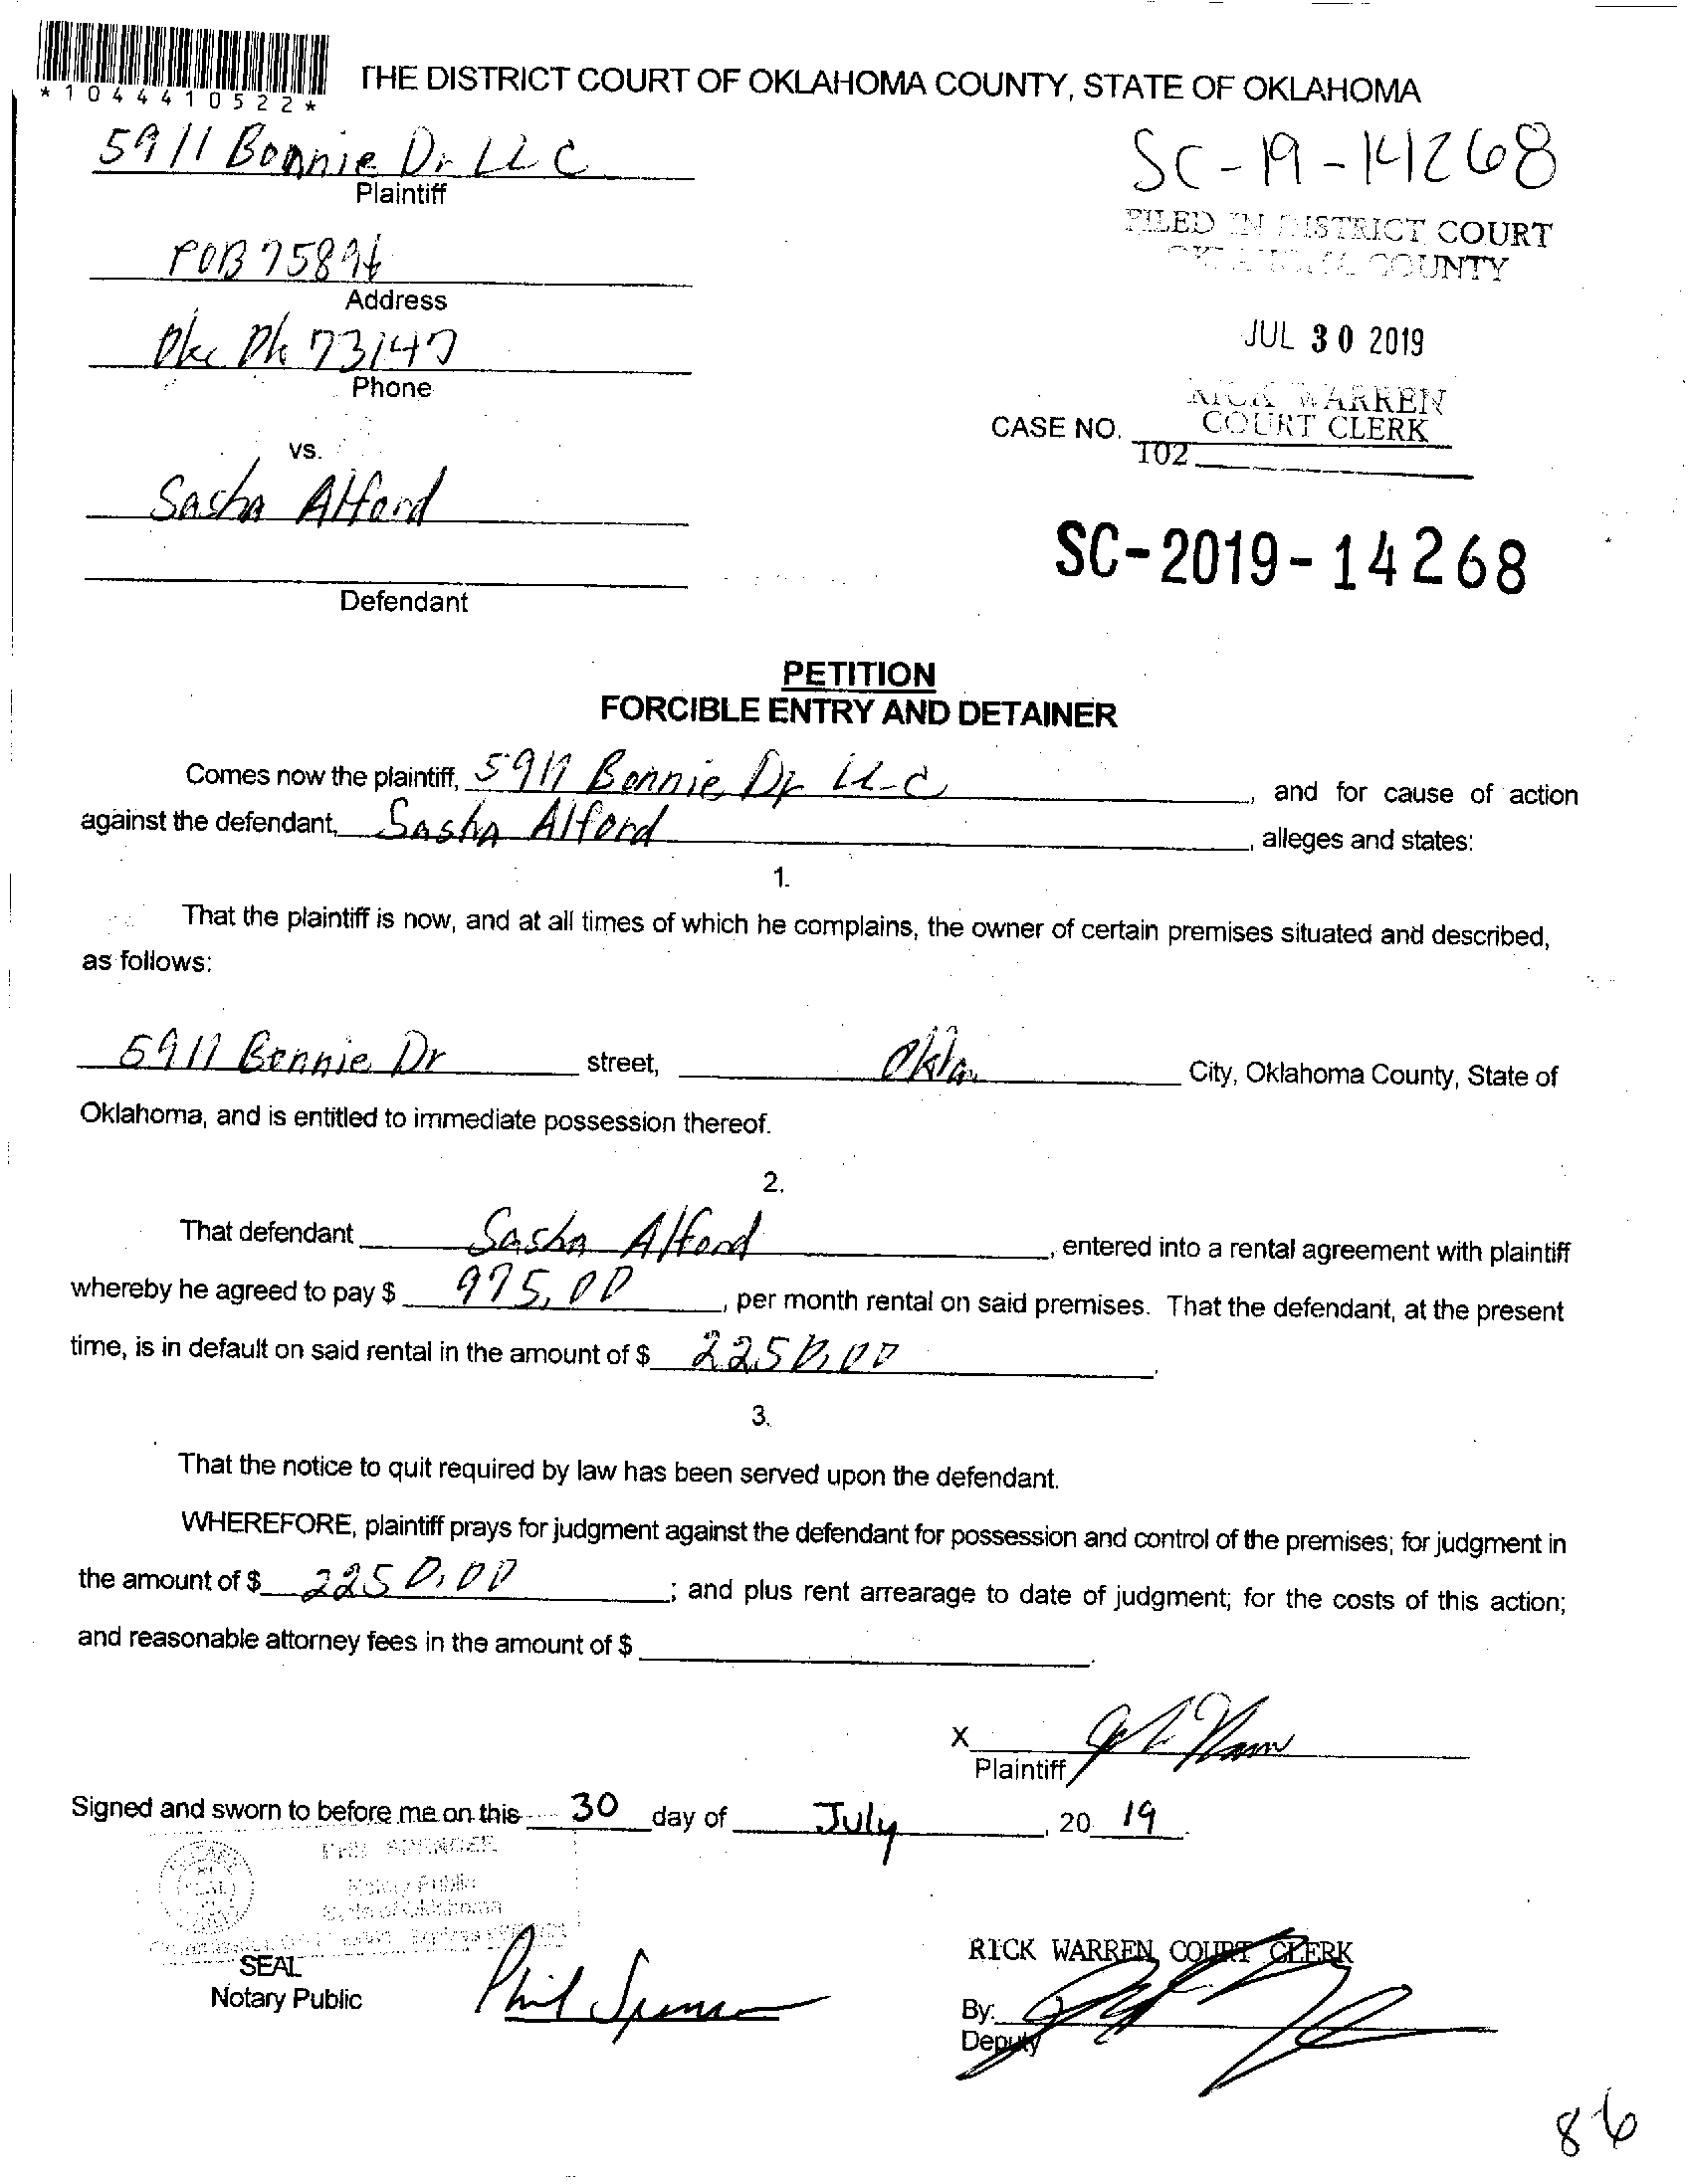 *1044410522*
THE DISTRICT COURT OF OKLAHOMA COUNTY, STATE OF OKLAHOMA
5911 Bonnie Dr LLC
Plaintiff
SC-19-14268
FILED IN DISTRICT COURT
OKLAHOMA COUNTY
POB 75894
Address
JUL 30 2019
Okc Ok 73147
Phone
RICK WARREN
COURT CLERK
CASE NO.
102
vs.
Sasha Alford
SC-2019-14268
Defendant
PETITION
FORCIBLE ENTRY AND DETAINER
Comes now the plaintiff, 5911 Bonnie Dr LLC, and for cause of action
against the defendant, Sasha Alford, alleges and states:
1.
That the plaintiff is now, and at all times of which he complains, the owner of certain premises situated and described,
as follows:
5911 Bonnie Dr street, Okla. City, Oklahoma County, State of
Oklahoma, and is entitled to immediate possession thereof.
2.
That defendant Sasha Alford, entered into a rental agreement with plaintiff
whereby he agreed to pay $ 975.00, per month rental on said premises. That the defendant, at the present
time, is in default on said rental in the amount of $ 2250.00.
3.
That the notice to quit required by law has been served upon the defendant.
WHEREFORE, plaintiff prays for judgment against the defendant for possession and control of the premises; for judgment in
the amount of $ 2250.00; and plus rent arrearage to date of judgment; for the costs of this action;
and reasonable attorney fees in the amount of $ .
X
Plaintiff
Signed and sworn to before me on this 30 day of July, 20 19.
PHIL SPENCER
Notary Public
State of Oklahoma
SEAL
Notary Public
Phil Spencer
RICK WARREN, COURT CLERK
By:
Deputy
86